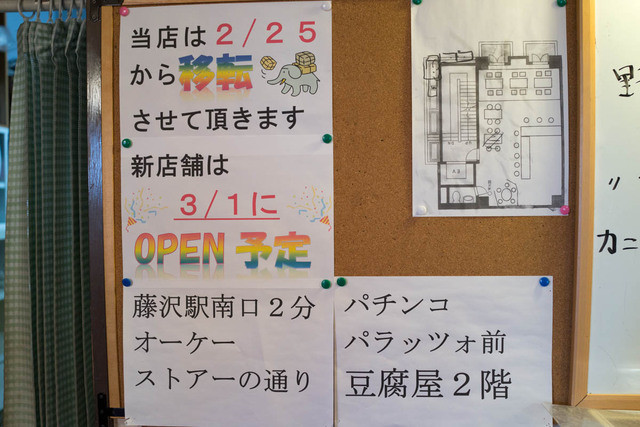 当店は2/25
から移転
させて頂きます
新店舗は
3/1に
OPEN予定
藤沢駅南口2分
オーケー
ストアーの通り
パチンコ
パラッツォ前
豆腐屋2階
野
〃
カニ